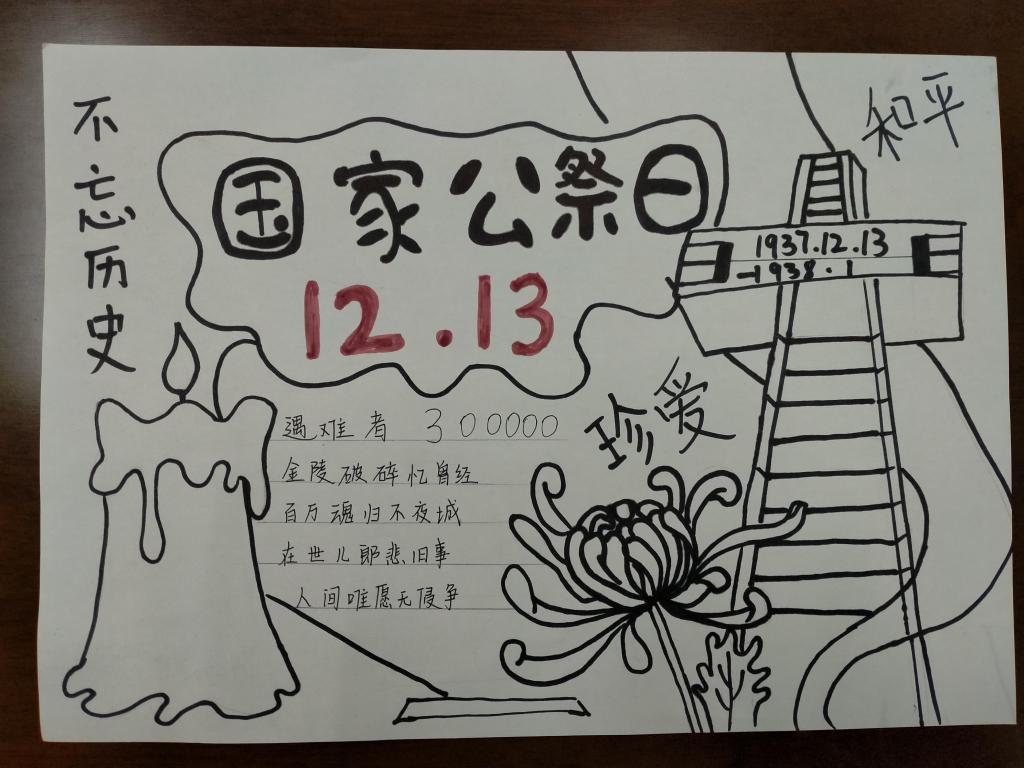 不忘历史
国家公祭日
12.13
和平
1937.12.13
-1938.1
珍爱
遇难者 300000
金陵破碎忆曾经
百万魂归不夜城
在世儿郎悲旧事
人间唯愿无侵争